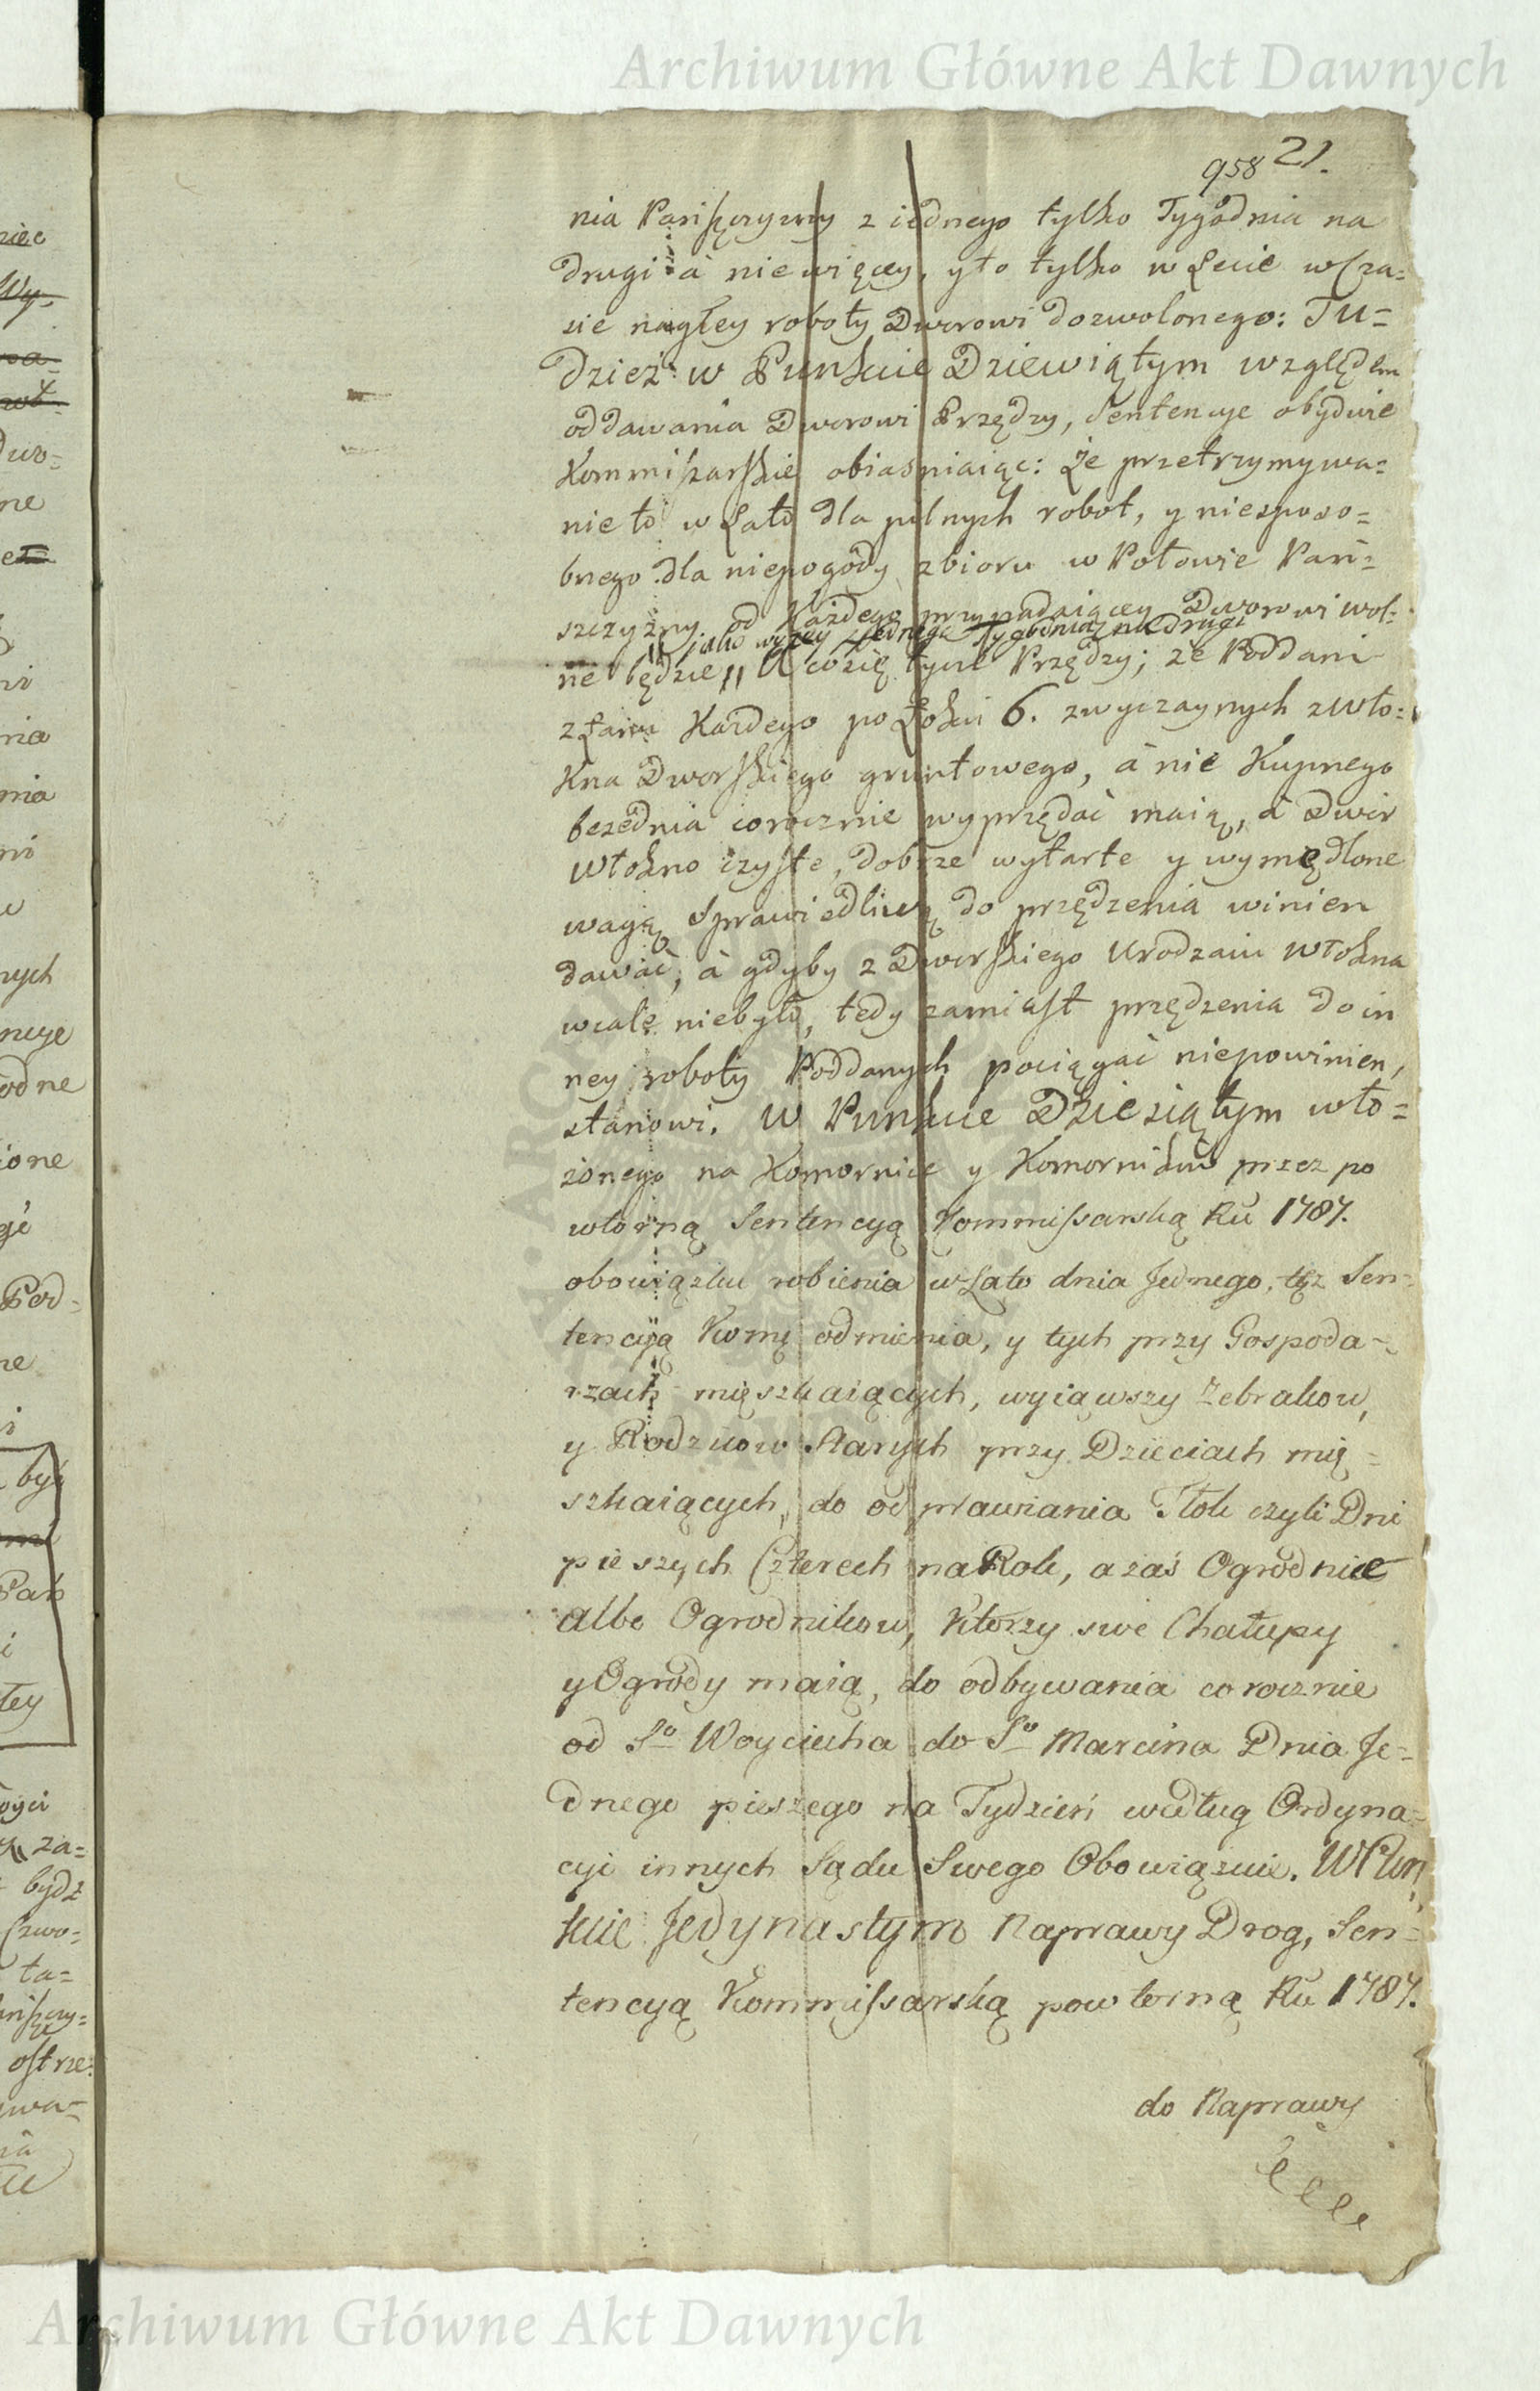 Archiwum Główne Akt Dawnych
958 21.
nia Pańszczyzny z iednego tylko Tygodnia na
drugi à nie więcey, y to tylko w Lecie w Cza=
sie nagłey roboty Dworowi dozwolonego: Tu=
dzież w Punkcie Dziewiątym względem
oddawania Dworowi Przędzy, Sentencye obydwie
Kommissarskie obiasniaiąc: Że przetrzymywa=
nie to w Lato dla pilnych robot, y niesposo=
bnego dla niepogody zbioru w Połowie Pań=
szczyzny od Każdego przypadaiącey Dworowi wol=
jako wyzey z Jednego Tygodnia na Drugi
ne będzie, || A co się tycze Przędzy; że Poddani
z Łanu Każdego po Łokci 6. zwyczaynych z Wło=
kna Dworskiego gruntowego, à nie Kupnego
bezednia corocznie wyprzędać maią, à Dwór
Włokno czyste, dobrze wytarte y wymędlone
wagą Sprawiedliwą do przędzenia winien
dawać; à gdyby z Dworskiego Urodzaiu Włokna
wcale niebyło, tedy zamiast przędzenia do in
ney roboty Poddanych pociągać niepowinien,
stanowi. W Punkcie Dziesiątym wło=
żonego na Komornice y Komornikow przez po
wtorną Sentencyą Kommissarską Ru 1787.
obowiązku robienia w Lato dnia Jednego, też Sen=
tencyą Kommę odmienia, y tych przy Gospoda=
rzach mięszkaiących, wyiąwszy Żebrakow,
y Rodzicow Starych przy Dzieciach mię=
szkaiących, do odprawiania Tłok czyli Dni
pieszych Czterech na Rok, a zaś Ogrodnice
albo Ogrodnikow, Ktorzy swe Chałupy
y Ogrody maią, do odbywania corocznie
od So Woyciecha do So Marcina Dnia Je=
dnego pieszego na Tydzień według Ordyna=
cyi innych Sądu Swego Obowiązuie. W Pun
kcie Jedynastym Naprawy Drog, Sen=
tencyą Kommissarską powtorną Ru 1787.
do Naprawy
Archiwum Główne Akt Dawnych